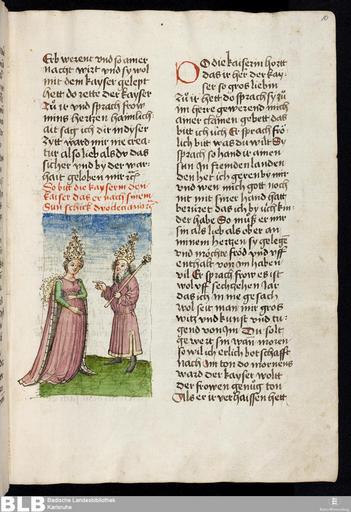 10
Erb werent vnd so aner
nacht wirt vnd sy wol
mit dem kayser gelept
hett do rette der kayser
Zů ir vnd sprach frow
mins hertzen haimlich
ait sag ich dir in dyser
Zytt ward mir nie crea
tur also lieb als du das
sicher vnd by der war
hait geloben mir
So bitt die kayserin den
kaiser das er nach sinem
Sun schick
Do die kaiserin hortt
das ir her der kay
ser so gros liebin
Zů ir hett do sprach sy zů
im herre gewerend mich
ainer clainen gebett das
bitt ich üch Er sprach frö
lich bitt was du wilt Sy
sprach so hand ir ainen
sun In fremden landen
den het ich geren by mir
vnd wen mich gott noch
nit mit siner hand hatt
berůret das ich by üch kin
der habe So můß er mir
sin als lieb als ob er an
minem hertzen sy gelegen
vnd möchte fröd vnd vff
enthalt von im haben
vil Er sprach frow es ist
wol vff sechtzehen Jar
das ich in nie gesach
wol seit man mir gros
witz vnd kunst vnd tu
gend von Im Du solt
so wil ich erlich bottschafft
nach Im ton do mornens
ward der kayser wolt
der frowen genůg ton
Als er ir verhaissen hett
BLB Badische Landesbibliothek
Karlsruhe
Baden-Württemberg